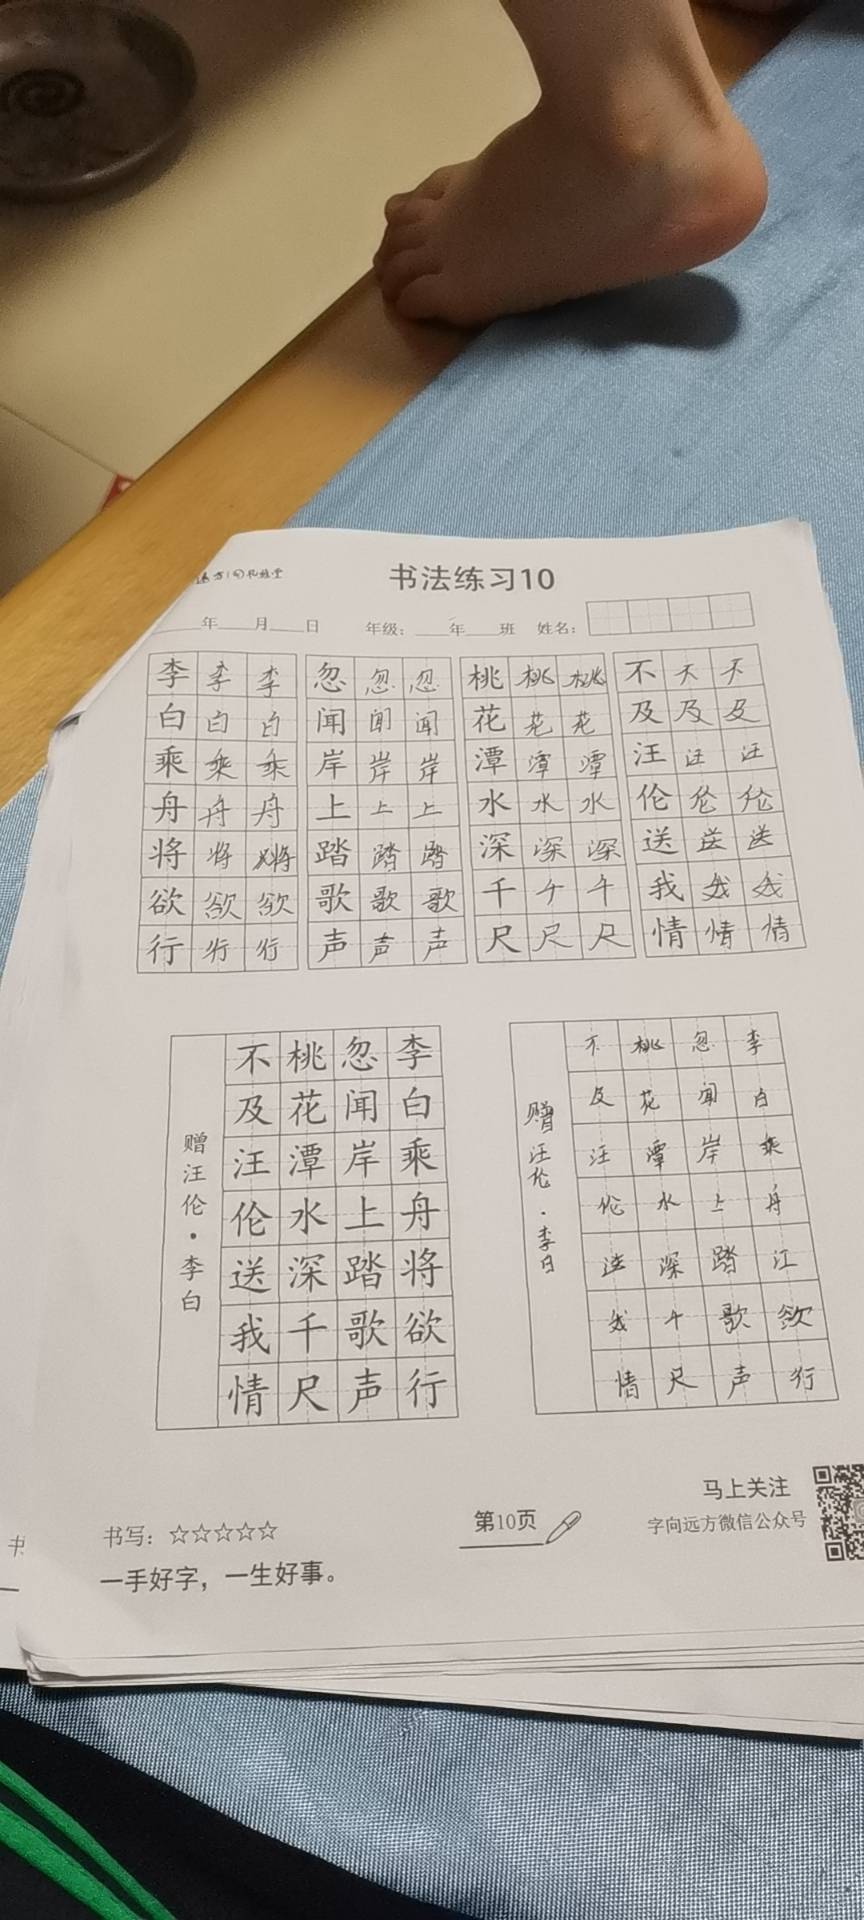 书法练习10
年 月 日 年级： 年 班 姓名：
李李李 忽忽忽 桃桃桃 不不不
白白白 闻闻闻 花花花 及及及
乘乘乘 岸岸岸 潭潭潭 汪汪汪
舟舟舟 上上上 水水水 伦伦伦
将将将 踏踏踏 深深深 送送送
欲欲欲 歌歌歌 千千千 我我我
行行行 声声声 尺尺尺 情情情
李白乘舟将欲行
忽闻岸上踏歌声
桃花潭水深千尺
不及汪伦送我情
赠汪伦·李白
李白乘舟江欲行
忽闻岸上踏歌声
桃花潭水深千尺
不及汪伦送我情
赠汪伦·李白
书写：☆☆☆☆☆
一手好字，一生好事。
第10页
马上关注
字向远方微信公众号